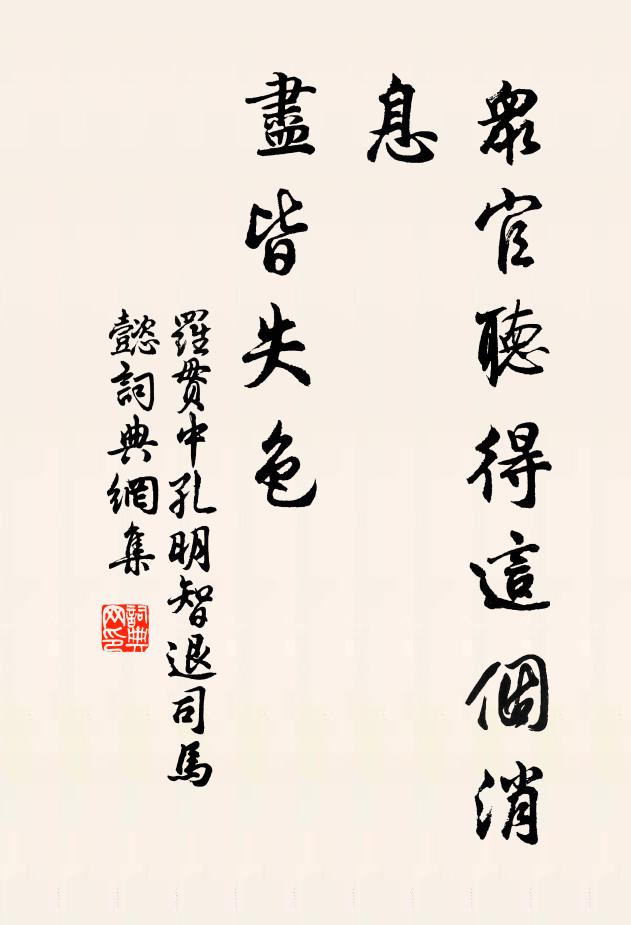 眾官聽得這個消
息
盡皆失色
羅貫中孔明智退司馬
懿詞典網集
詞典
网印